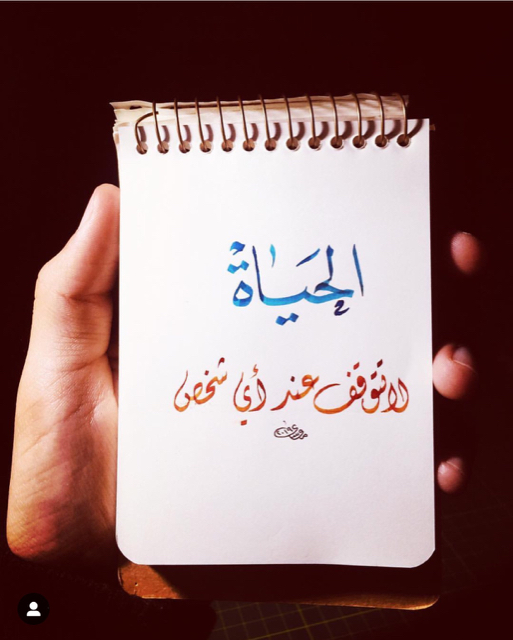 الحَيَاة
لا تتوقف عند أي شخص